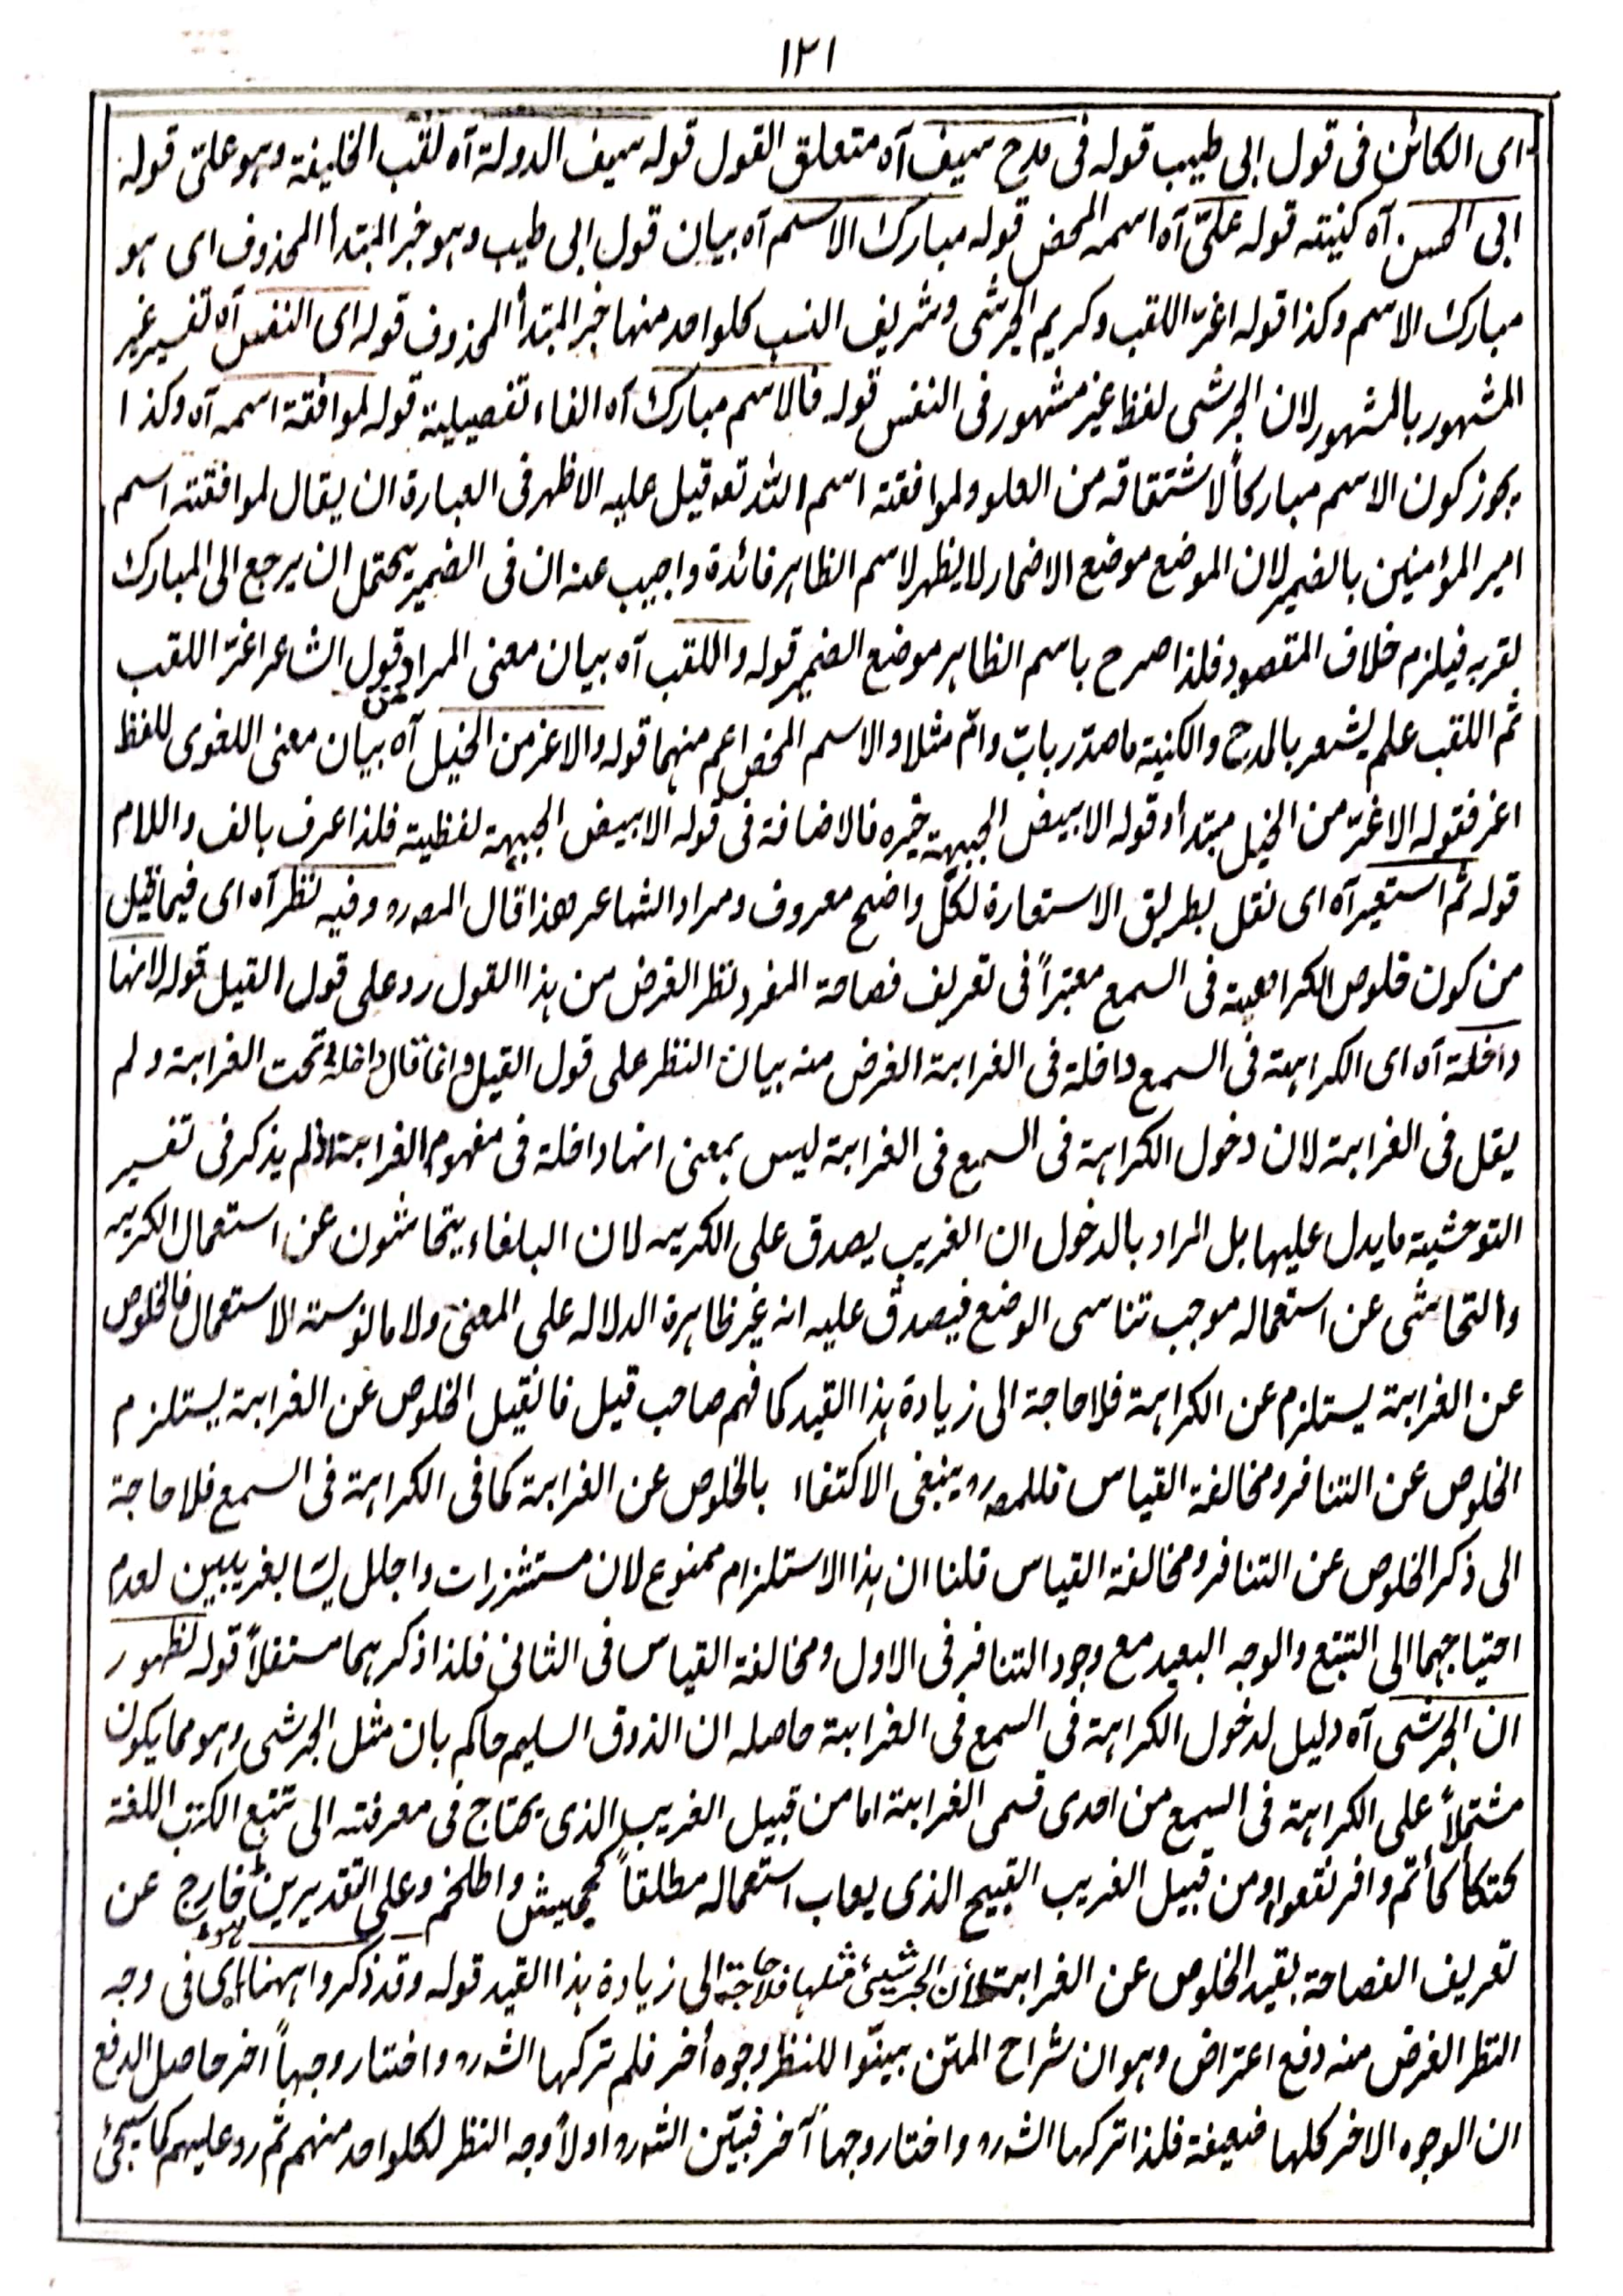 ١٢١
ای الکائن فی قول ابی طیب قوله فی مدح سیف آه متعلق القول قوله سیف الدولة آه لقب الخلیفة وہو علیّ قوله
ابی الحسن آه کنیته قوله علیّ آه اسمه المحض قوله مبارک الاسم آه بیان قول ابی طیب وہو خبر المبتدأ المحذوف ای ہو
مبارک الاسم وکذا قوله اغرّ اللقب وکریم الجرشی وشریف النسب کلواحد منہا خبر المبتدأ المحذوف قوله ای النفس آه تفسیر غیر
المشہور بالمشہور لان الجرشی لفظ غیر مشہور فی النفس قوله فالاسم مبارک آه الفاء تفصیلیة قوله لموافقة اسمه آه وکذا
یجوز کون الاسم مبارکاً لاشتقاقه من العلو ولموافقته اسم اللّٰہ تعہ قیل علیه الاظہر فی العبارة ان یقال لموافقته اسم
امیر المؤمنین بالضمیر لان الموضع موضع الاضمار لا یظہر لاسم الظاہر فائدة واجیب عنه ان فی الضمیر یحتمل ان یرجع الی المبارک
لقربہ فیلزم خلاف المقصود فلذا صرح باسم الظاہر موضع الضمیر قوله واللقب آه بیان معنی المراد من قول الشاعر اغرّ اللقب
ثم اللقب علم یشعر بالمدح والکنیة ما صدّر بابٍ وامّ مثلا والاسم المحض اعم منہما قوله والاغر من الخیل آه بیان معنی اللغوی للفظ
اغر فقوله الاغرّ من الخیل مبتدأ وقوله الابیض الجبہة خبره فالاضافة فی قوله الابیض الجبہة لفظیة فلذا عرف بالف واللام
قوله ثم استعیر آه ای نقل بطریق الاستعارة لکلّ واضح معروف ومراد الشاعر ھذا قال المصرہ وفیه نظر آه ای فیما قیل
من کون خلوص الکراھیة فی السمع معتبراً فی تعریف فصاحة المفرد نظر الغرض من ہذا القول رد علی قول القیل قوله لانہا
داخلة آه ای الکراہة فی السمع داخلة فی الغرابة الغرض منه بیان النظر علی قول القیل وانما قال داخلة تحت الغرابة ولم
یقل فی الغرابة لان دخول الکراہة فی السمع فی الغرابة لیس بمعنی انہا داخلة فی مفہوم الغرابة اذ لم یذکر فی تفسیر
التوحشیة ما یدل علیہا بل المراد بالدخول ان الغریب یصدق علی الکریہ لان البلغاء یتحاشون عن استعمال الکریہ
والتحاشی عن استعماله موجب تناسی الوضع فیصدق علیه انه غیر ظاہرة الدلاله علی المعنی ولا مانوسة الاستعمال فالخلوص
عن الغرابة یستلزم عن الکراہة فلا حاجة الی زیادة ہذا القید کما فہم صاحب قیل فانقیل الخلوص عن الغرابة یستلزم
الخلوص عن التنافر ومخالفة القیاس فللمصرہ ینبغی الاکتفاء بالخلوص عن الغرابة کما فی الکراہة فی السمع فلا حاجة
الی ذکر الخلوص عن التنافر ومخالفة القیاس قلنا ان ہذا الاستلزام ممنوع لان مستشزرات واجلل لیسا بغریبین لعدم
احتیاجہما الی التتبع والوجه البعید مع وجود التنافر فی الاول ومخالفة القیاس فی الثانی فلذا ذکرہما مستقلاً قوله لظہور
ان الجرشی آه دلیل لدخول الکراہة فی السمع فی الغرابة حاصله ان الذوق السلیم حاکم بان مثل الجرشی وہو مما یکون
مشتملاً علی الکراہة فی السمع من احدی قسمی الغرابة اما من قبیل الغریب الذی یحتاج فی معرفته الی تتبع الکتب اللغة
کتکأکأتم وافرنقعوا ومن قبیل الغریب القبیح الذی یعاب استعماله مطلقاً کجحیش واطلخم وعلی التقدیرین خارج عن
تعریف الفصاحة بقید الخلوص عن الغرابة لأن الجرشیٰ مثلہا فلا حاجة الی زیادة ہذا القید قوله وقد ذکروا ہہنا ای فی وجه
النظر الغرض منه دفع اعتراض وہو ان شراح المتن بینّوا للنظر وجوه أخر فلم ترکہا الشرہ واختار وجہاً اخر حاصل الدفع
ان الوجوه الاخر کلہا ضعیفة فلذا ترکہا الشرہ واختار وجہاً آخر فبیّن الشرہ اولاً وجه النظر لکلواحد منہم ثم رد علیہم کما سیجئ